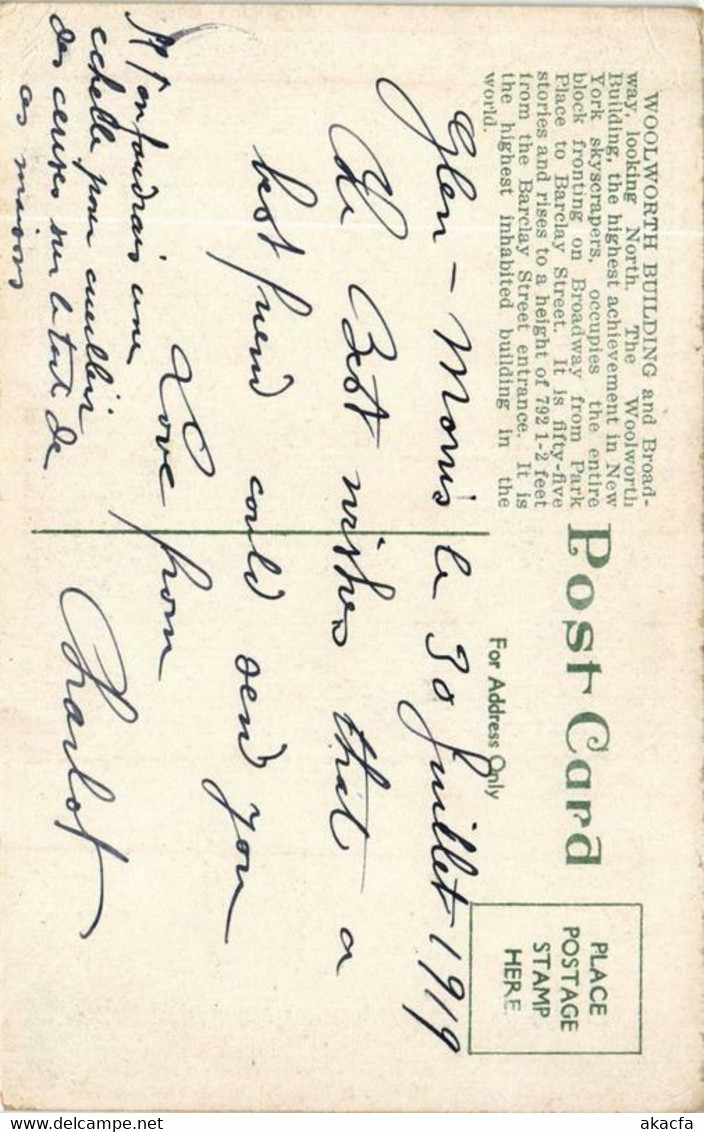 WOOLWORTH BUILDING and Broad-
way, looking North. The Woolworth
Building, the highest achievement in New
York skyscrapers, occupies the entire
block fronting on Broadway from Park
Place to Barclay Street. It is fifty-five
stories and rises to a height of 792 1-2 feet
from the Barclay Street entrance. It is
the highest inhabited building in the
world.
Post Card
For Address Only
PLACE
POSTAGE
STAMP
HERE
Glen-Morris le 30 Juillet 1919
The Best wishes that a
best friend could send you
Love from
Charlot
faudrais une
echelle pour cueillir
des cerises sur le toit de
ces maisons
www.delcampe.net
akacfa